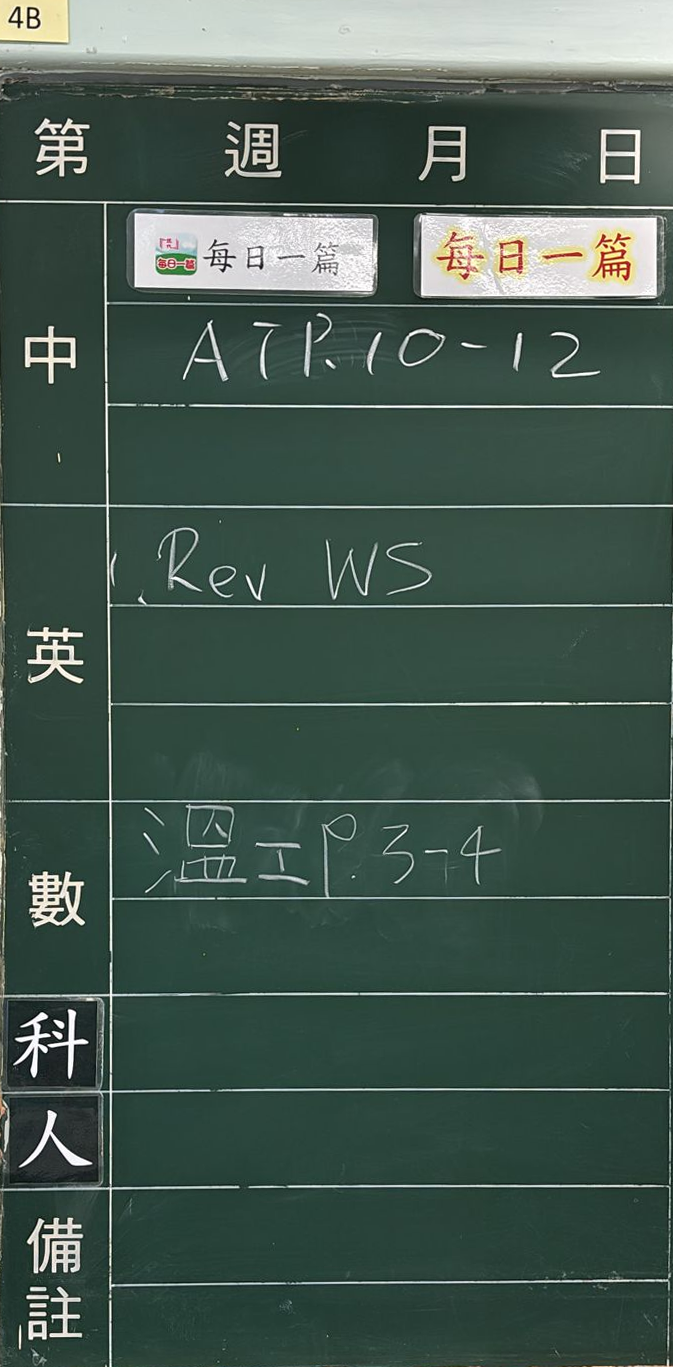 4B
第 週 月 日
每日一篇 每日一篇 每日一篇
中
ATP.10-12
英
1. Rev WS
數
溫工P.3-4
科
人
備註